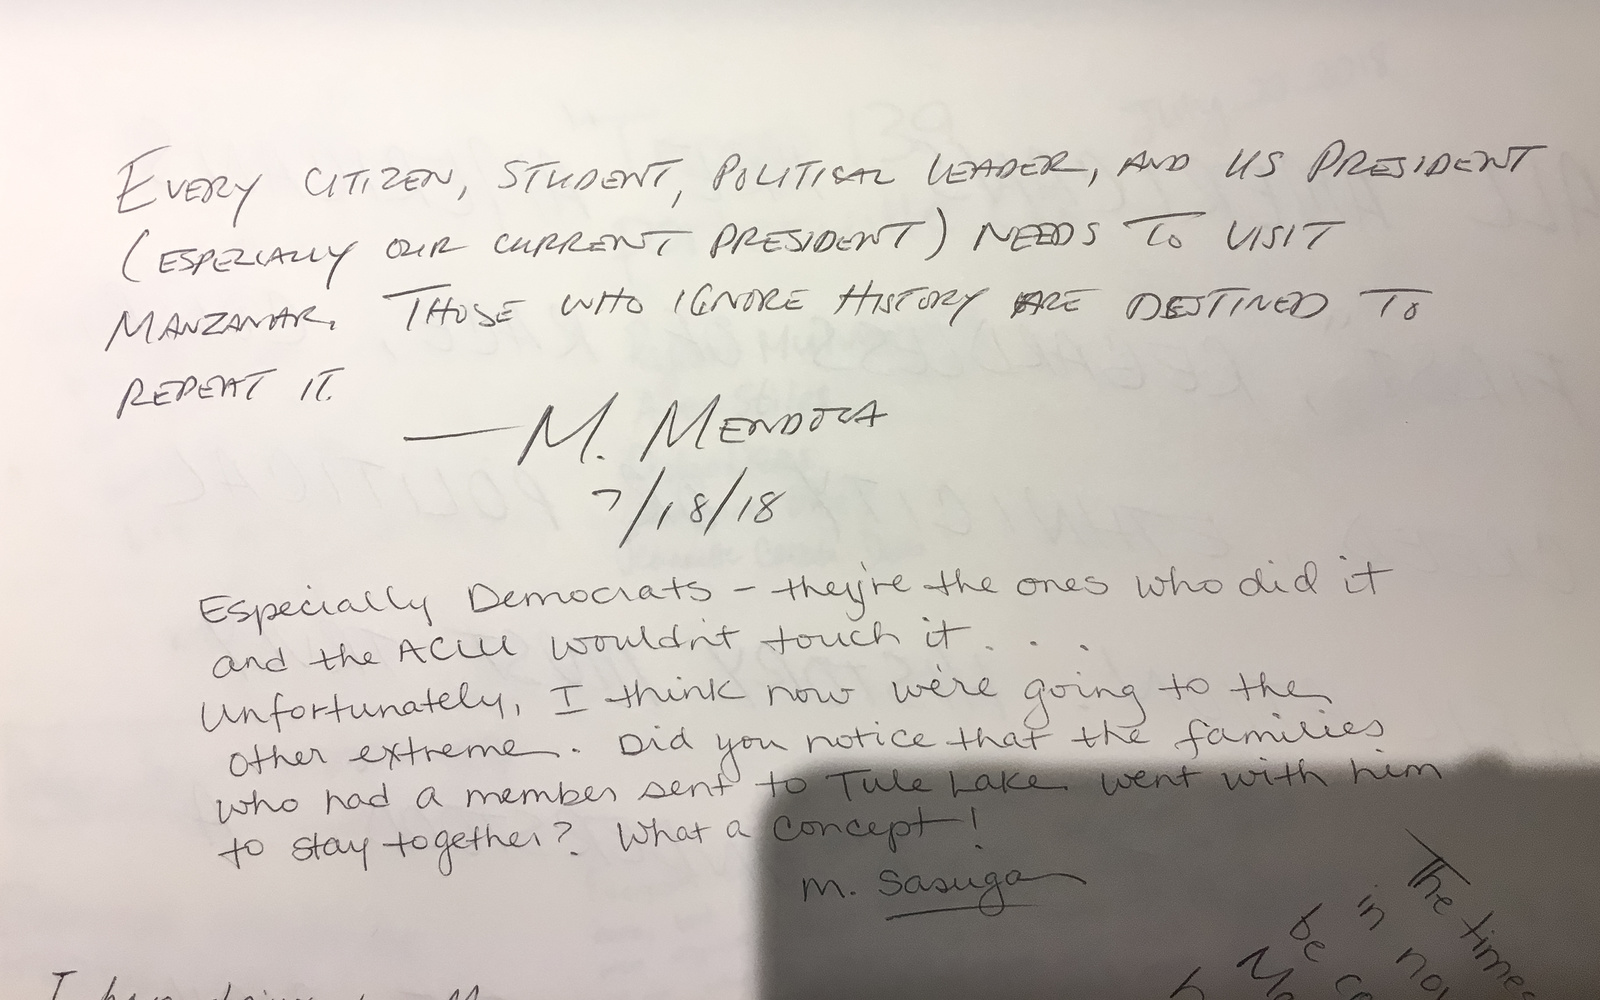 EVERY CITIZEN, STUDENT, POLITICAL LEADER, AND US PRESIDENT
(ESPECIALLY OUR CURRENT PRESIDENT) NEEDS TO VISIT
MANZANAR. THOSE WHO IGNORE HISTORY ARE DESTINED TO
REPEAT IT.
—M. MENDOZA
7/18/18
Especially Democrats - they're the ones who did it
and the ACLU wouldn't touch it . . .
Unfortunately, I think now we're going to the
other extreme. Did you notice that the families
who had a member sent to Tule Lake went with him
to stay together? What a concept!
M. Sasuga
The times
in
be